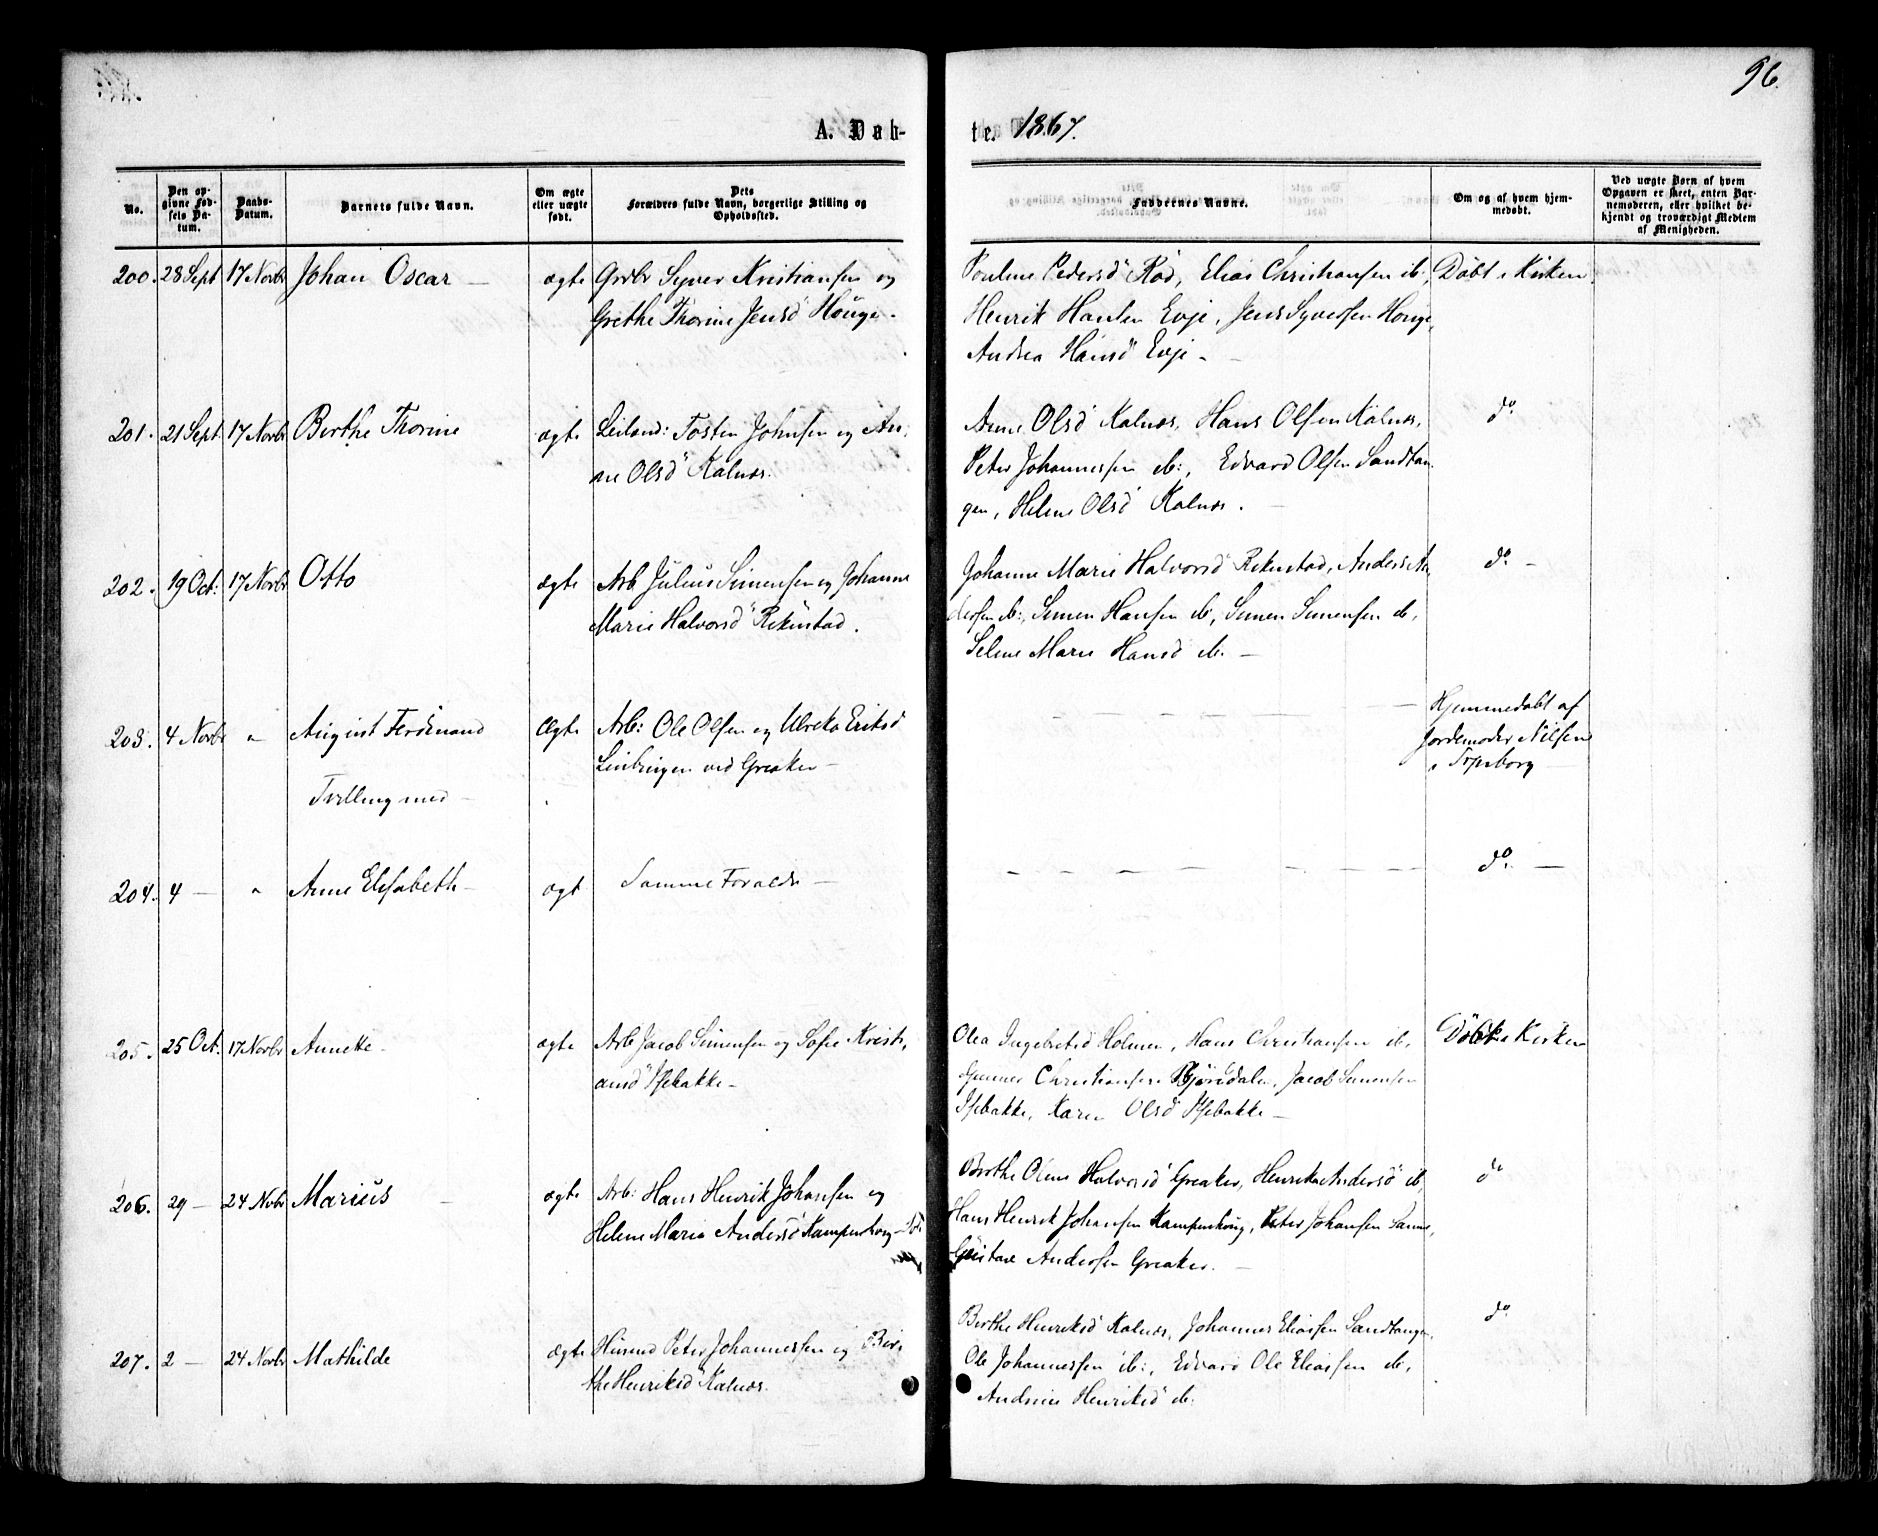 96.
A. Døb-
te. 1867.
No.
Den opgivne Fødsels Datum.
Daabs-Datum.
Barnets fulde Navn.
Om ægte eller uægte født.
Dets Forældres fulde Navn, borgerlige Stilling og Opholdssted.
Faddernes Navne.
Om og af hvem hjemmedøbt.
Ved uægte Børn af hvem Opgaven er skeet, enten Barnemoderen, eller hvilket bekjendt og troværdigt Medlem af Menigheden.
200. 28 Sept 17 Novbr Johan Oscar — ægte Grdbr Syver Kristiansen og
Grethe Thorine Jensd Houge.
Pouline Pedersd Rød, Elias Christiansen ib:,
Henrik Hansen Evje, Jens Syversen Houge,
Andrea Hansd Evje —
Døbt i Kirken.
201. 21 Sept 17 Novbr Berthe Thorine ægte Leiland: Tosten Johnsen og An-
ne Olsd Kalnæs.
Anne Olsd Kalnæs, Hans Olsen Kalnæs,
Peter Johannessen ib:, Edvard Olsen Sandtan-
gen, Helene Olsd Kalnæs. —
do
202. 19 Oct: 17 Novbr Otto ægte Arb Julius Simensen og Johanne
Marie Halvorsd Rekustad.
Johanne Marie Halvorsd Rekustad, Anders An-
dersen ib:, Simen Hansen ib, Simen Simensen ib,
Seline Marie Hansd ib. —
do —
203. 4 Novbr " August Ferdinand Ægte Arb: Ole Olsen og Ulrika Eriksd
ved Greaker —
Tvilling med —
Hjemmedøbt af
Jordemoder Nilsen
i
204. 4 — " Anne Elisabeth — ægt Samme Forældr —
do —
205. 25 Oct. 17 Novbr Annette — ægte Arb Jacob Simensen og Sofie Kristi-
ansd Isebakke —
Olea Ingebretsd Holmen, Hans Christiansen ib,
Gunner Christiansen Bjørndalen, Jacob Simensen
Isebakke, Karen Olsd Isebakke —
Døbt i Kirken
206. 29 — 24 Nvbr Marius — ægte Arb: Hans Henrik Johansen og
Helene Marie Andersd Kampenhoug
Berthe Oline Halvorsd Greaker, Henrike Andersd ib,
Hans Henrik Johansen Kampenhoug, Peter Johansen Sanne,
Gustav Andersen Greaker. —
do
207. 2 — 24 Novbr Mathilde ægte Husmd Peter Johannessen og Ber-
the Henriksd Kalnæs.
Berthe Henriksd Kalnæs, Johannes Eliassen Sandtangen,
Ole Johannessen ib:, Edvard Ole Eliassen ib,
Andrine Henriksd ib:
do